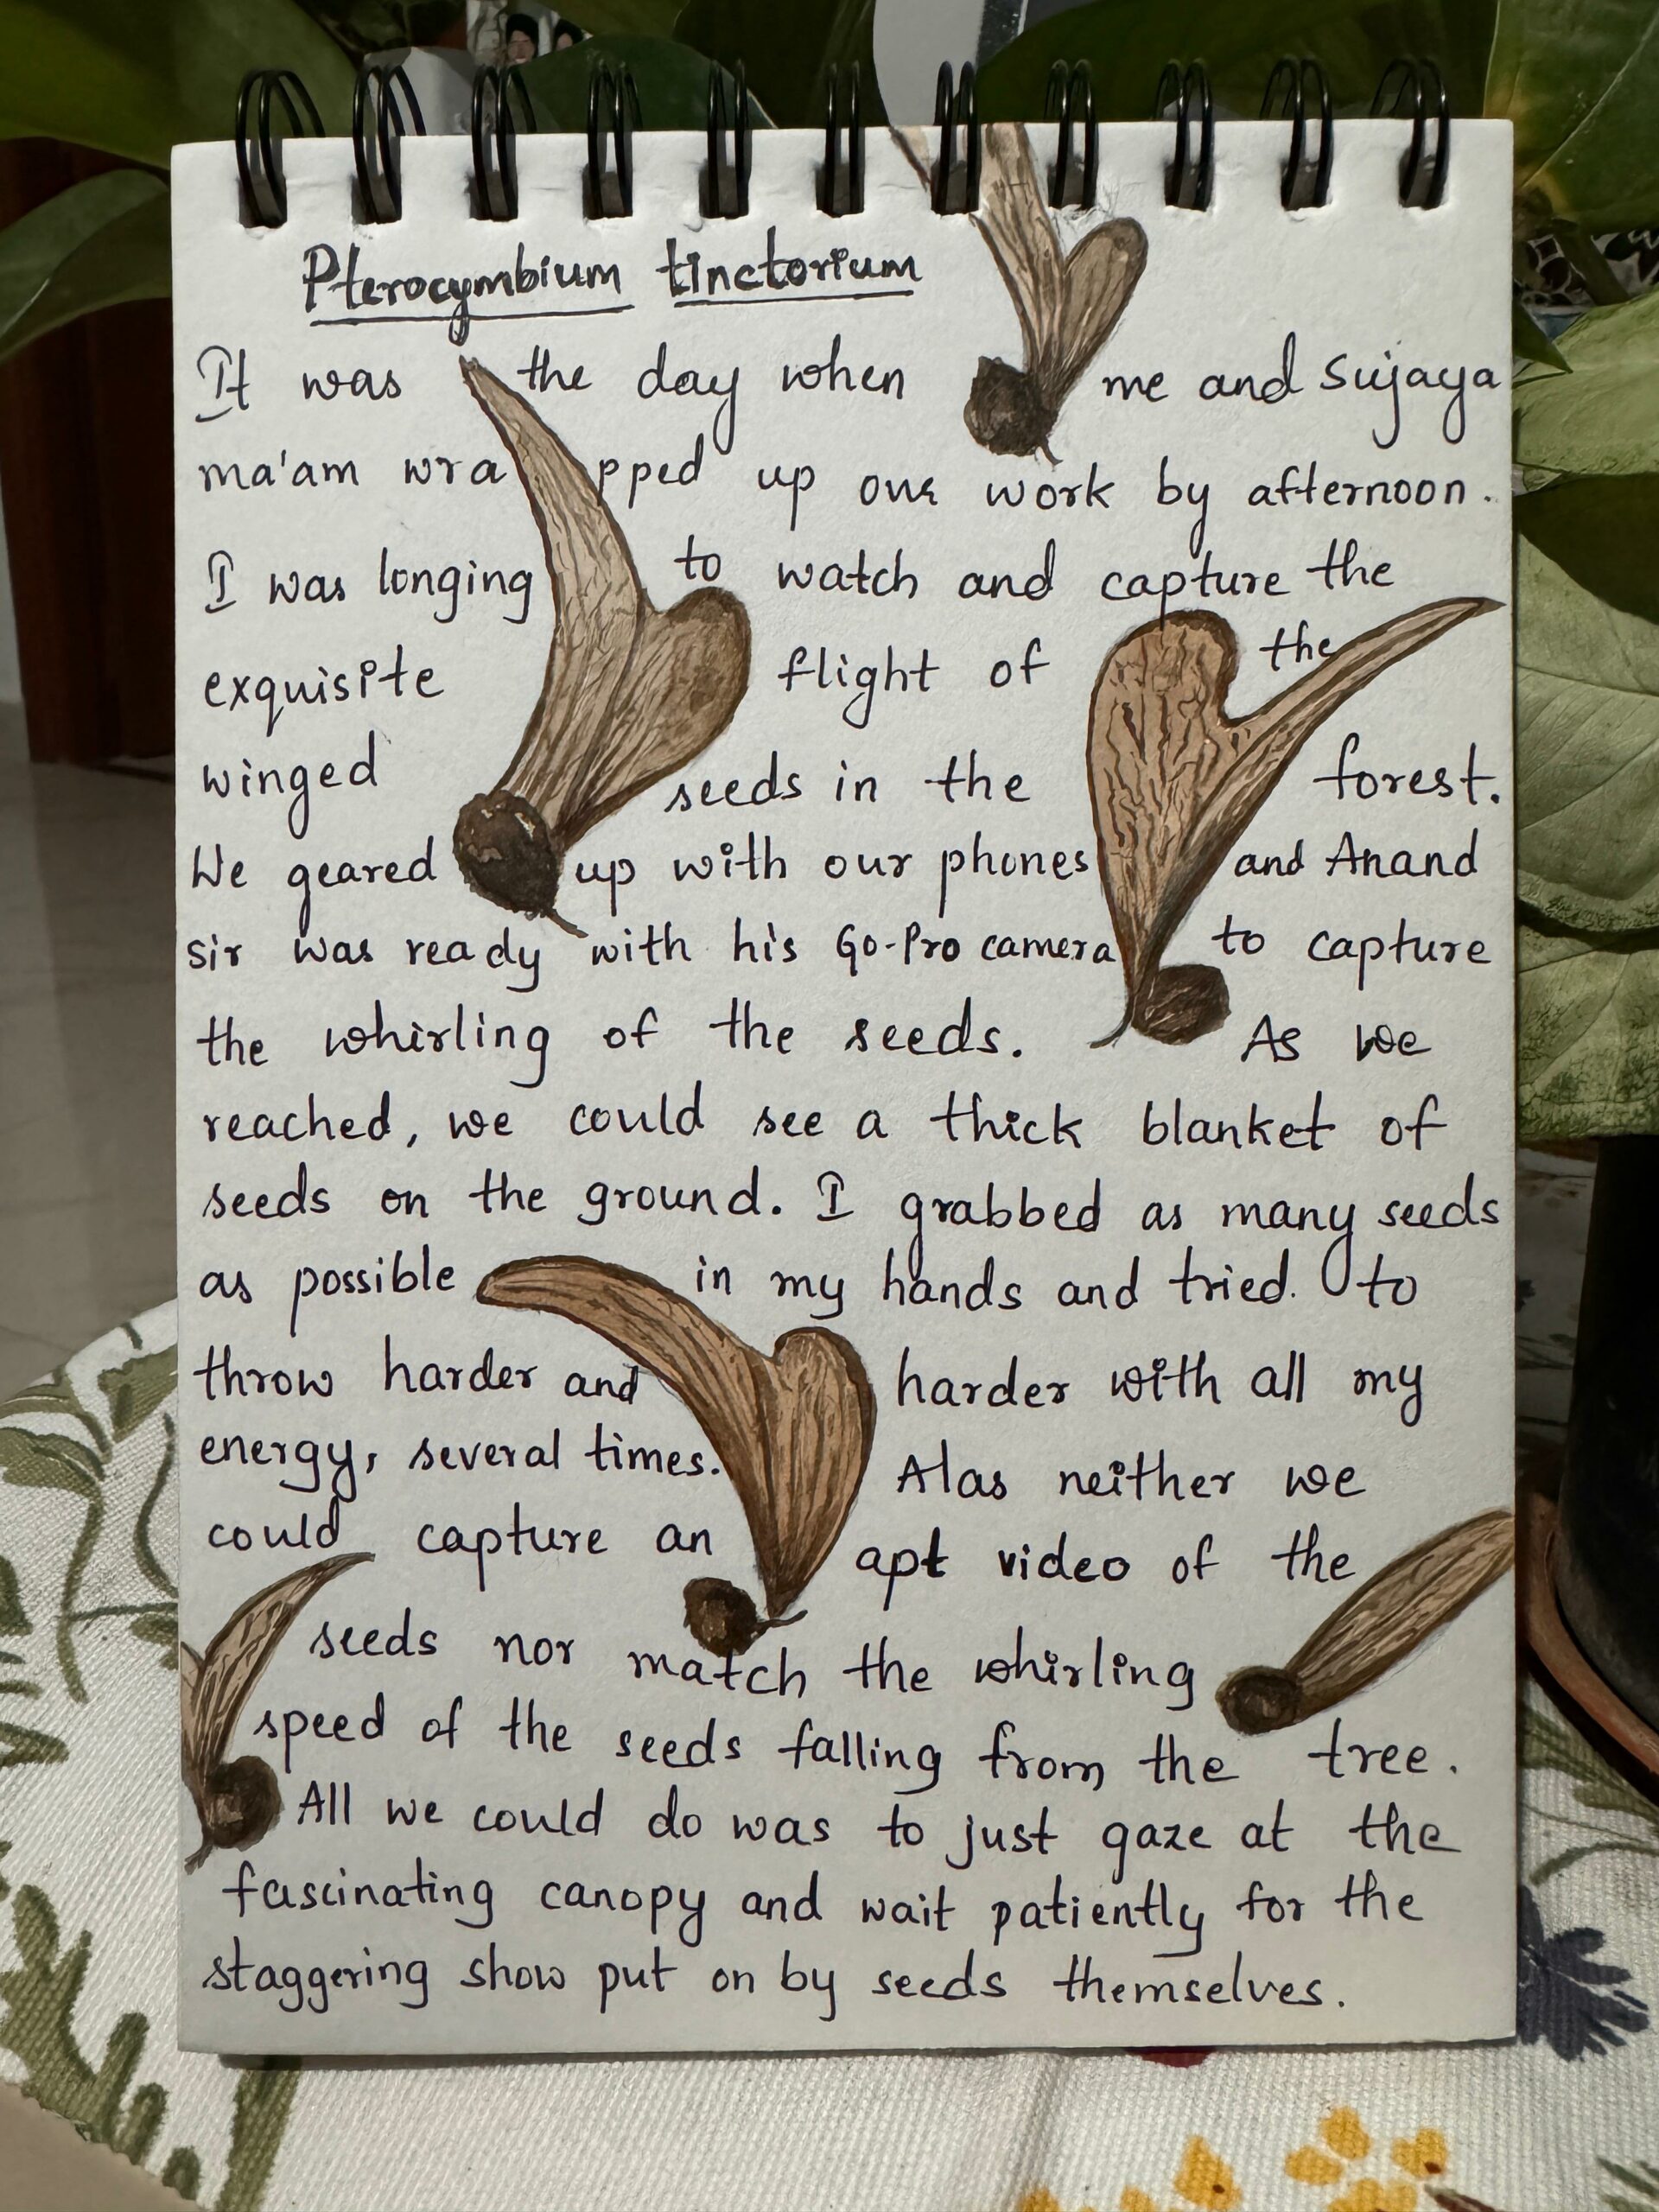 Pterocymbium tinctorium
It was the day when me and Sujaya
ma'am wrapped up our work by afternoon.
I was longing to watch and capture the
exquisite flight of the
winged seeds in the forest.
We geared up with our phones and Anand
sir was ready with his Go-Pro camera to capture
the whirling of the seeds. As we
reached, we could see a thick blanket of
seeds on the ground. I grabbed as many seeds
as possible in my hands and tried. to
throw harder and harder with all my
energy, several times. Alas neither we
could capture an apt video of the
seeds nor match the whirling
speed of the seeds falling from the tree.
All we could do was to just gaze at the
fascinating canopy and wait patiently for the
staggering show put on by seeds themselves.